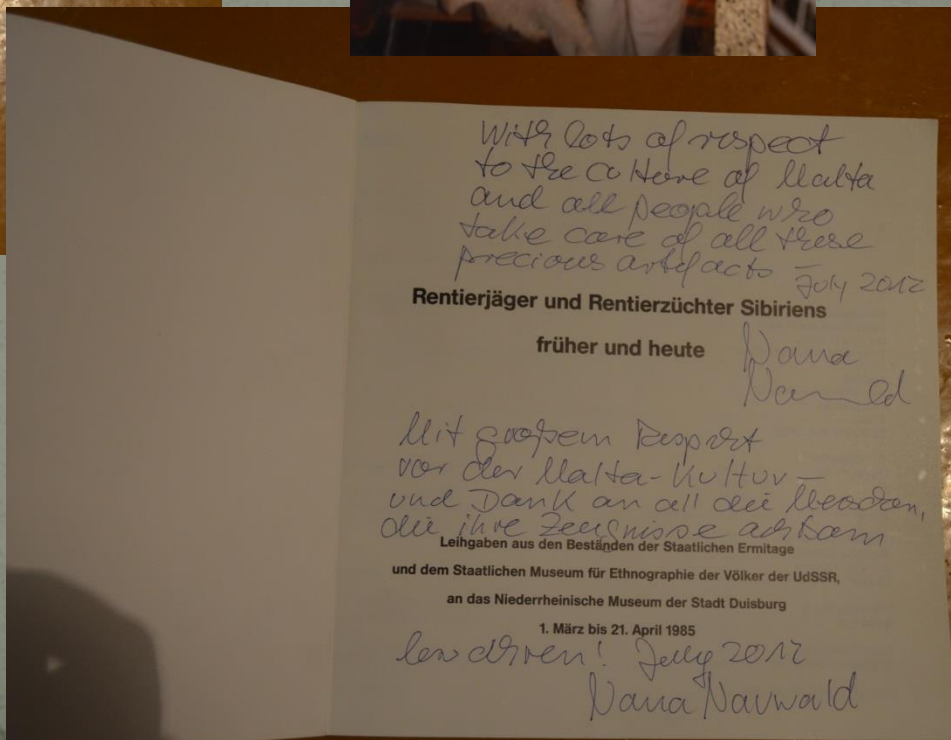 With lots of respect
to the culture of Malta
and all people who
take care of all these
precious artefacts July 2012
Rentierjäger und Rentierzüchter Sibiriens
früher und heute
Nana
Nauwald
Mit großem Respekt
vor der Malta-Kultur –
und Dank an all die Menschen,
die ihre Zeugnisse achtsam
Leihgaben aus den Beständen der Staatlichen Ermitage
und dem Staatlichen Museum für Ethnographie der Völker der UdSSR,
an das Niederrheinische Museum der Stadt Duisburg
1. März bis 21. April 1985
bewahren! July 2012
Nana Nauwald